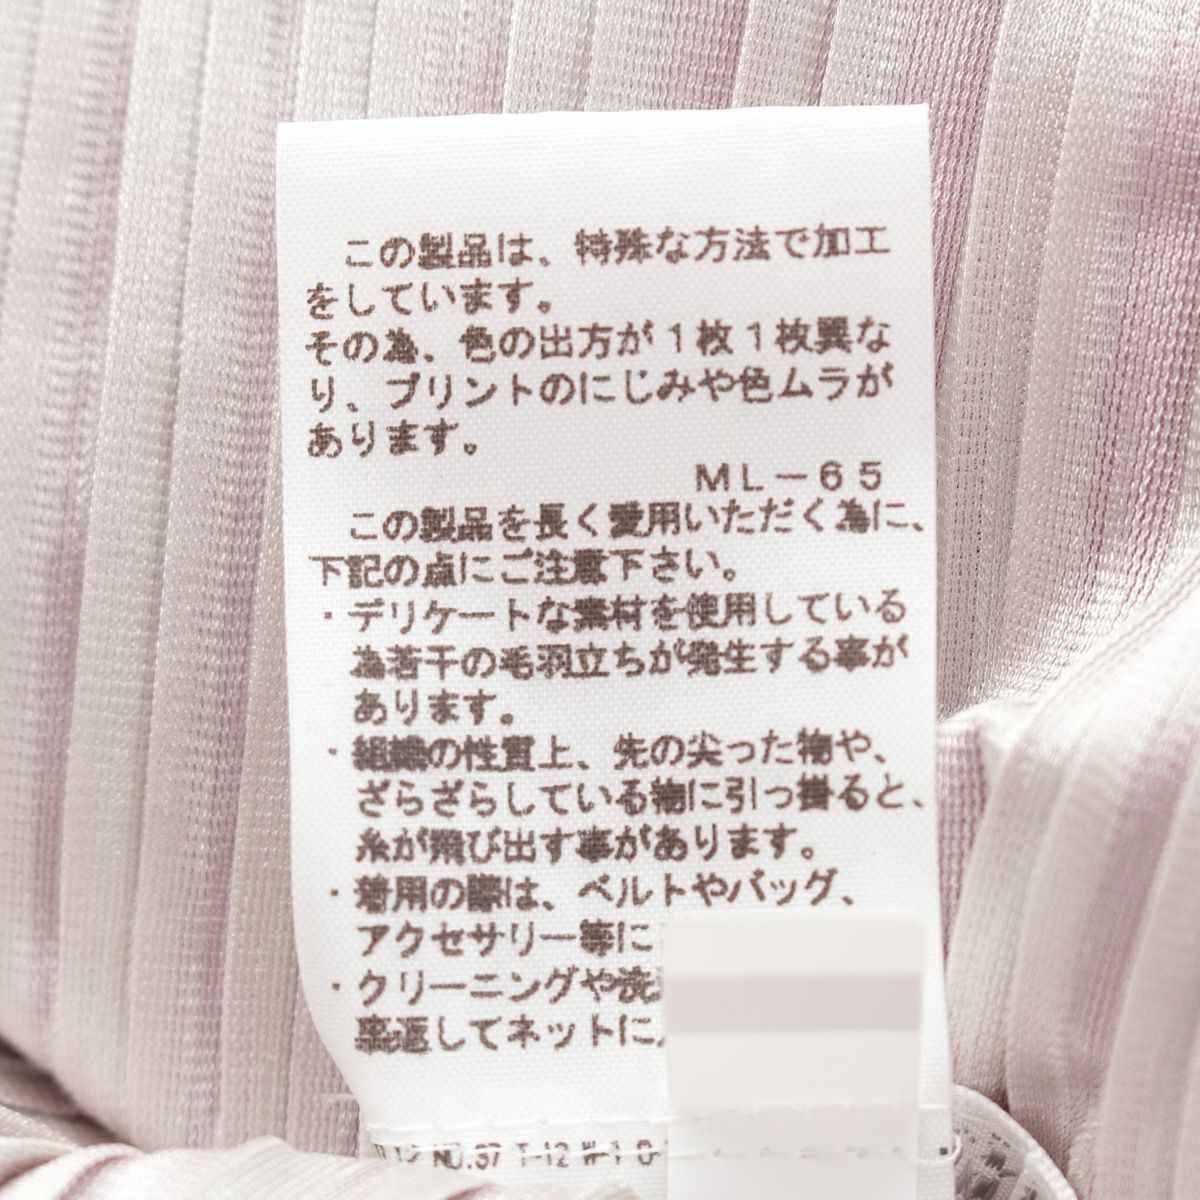 この製品は、特殊な方法で加工
をしています。
その為、色の出方が1枚1枚異な
り、プリントのにじみや色ムラが
あります。
ML-65
この製品を長く愛用いただく為に、
下記の点にご注意下さい。
・デリケートな素材を使用している
為若干の毛羽立ちが発生する事が
あります。
・組織の性質上、先の尖った物や、
ざらざらしている物に引っ掛ると、
糸が飛び出す事があります。
・着用の際は、ベルトやバッグ、
アクセサリー等に
・クリーニングや洗
裏返してネットに
NO.37 T-12 W-1